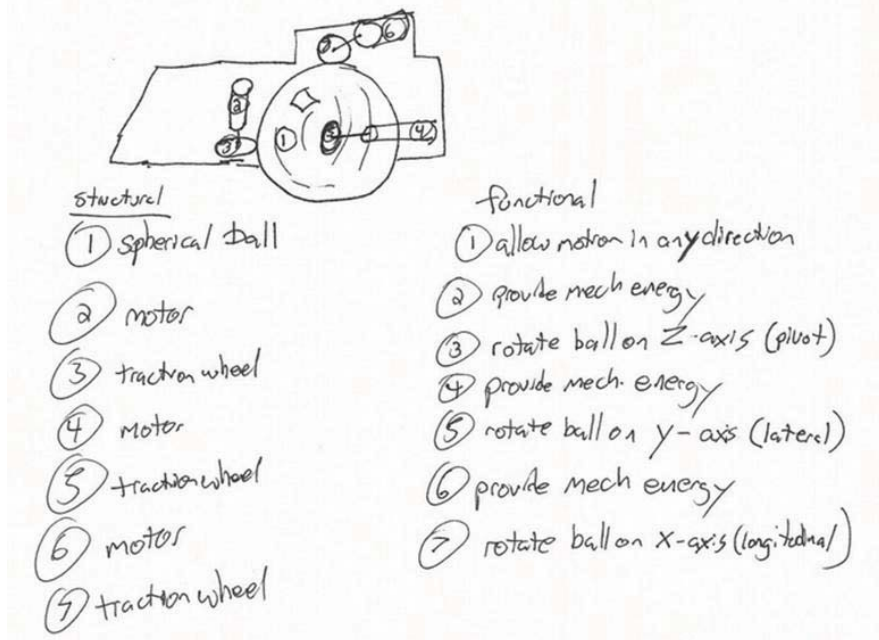 7
6
2
1
5
4
3
structural
① spherical ball
② motor
③ traction wheel
④ motor
⑤ traction wheel
⑥ motor
⑦ traction wheel
functional
① allow motion in any direction
② provide mech energy
③ rotate ball on Z-axis (pivot)
④ provide mech. energy
⑤ rotate ball on y-axis (lateral)
⑥ provide mech energy
⑦ rotate ball on X-axis (longitudinal)